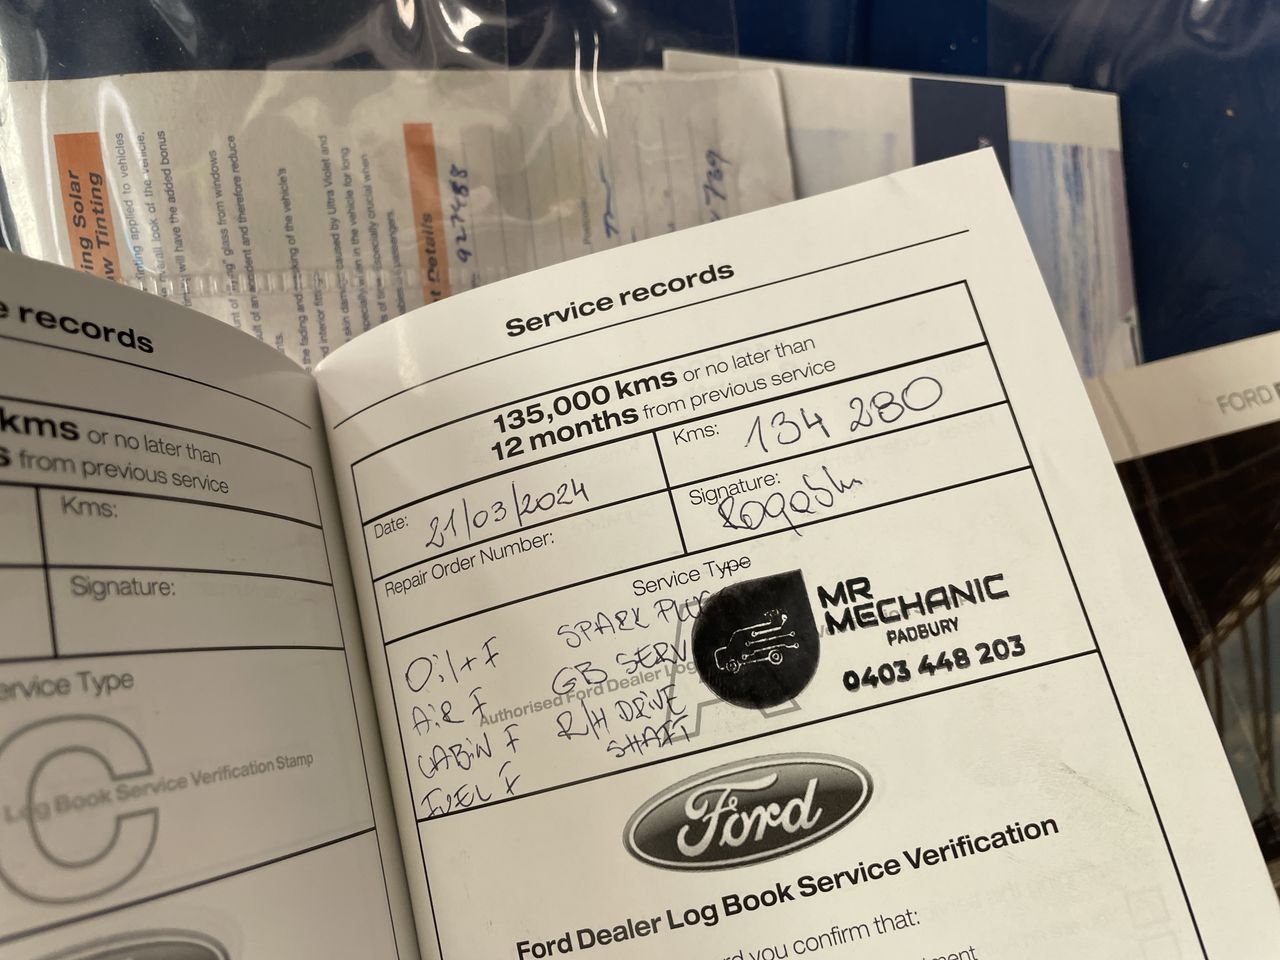 ing Solar
w Tinting
inting applied to vehicles
overall look of the vehicle,
will have the added bonus
glass from windows
and therefore reduce
the fading and
of the vehicle's
caused by Ultra Violet and
when in the vehicle for long
especially crucial when
passengers.
t Details
927488
739
FORD
e records
kms or no later than
s from previous service
Kms:
Signature:
ervice Type
C
Log Book Service Verification Stamp
Service records
135,000 kms or no later than
12 months from previous service
Date: 21/03/2024
Kms: 134 280
Repair Order Number:
Signature:
Service Type
Oil + F
AiR F
CABiN F
FUEL F
SPARK PLUG
GB SERV
R/H DRIVE
SHAFT
A
Authorised Ford Dealer Log
MR
MECHANIC
PADBURY
0403 448 203
Ford
Ford Dealer Log Book Service Verification
rd you confirm that: